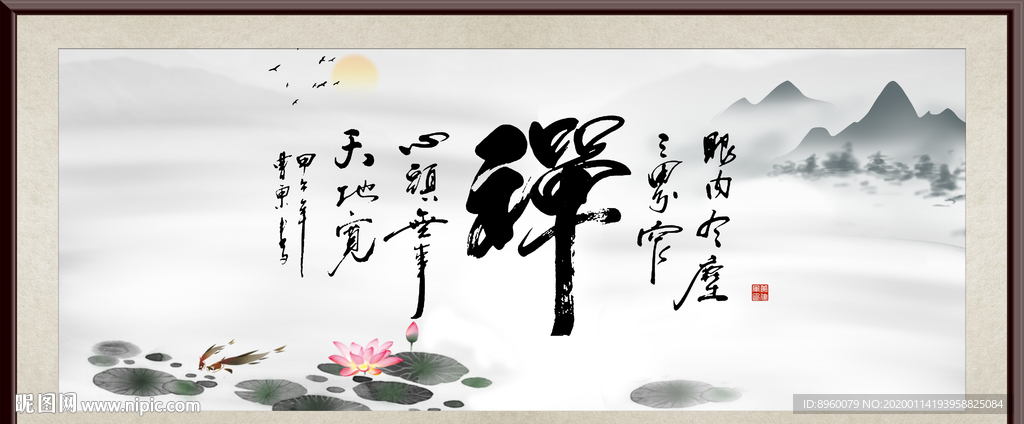 眼内有塵
三界窄
禪
心頭無事
天地寬
甲午年
昵图网 www.nipic.com
ID:8960079 NO:20200114193958825084